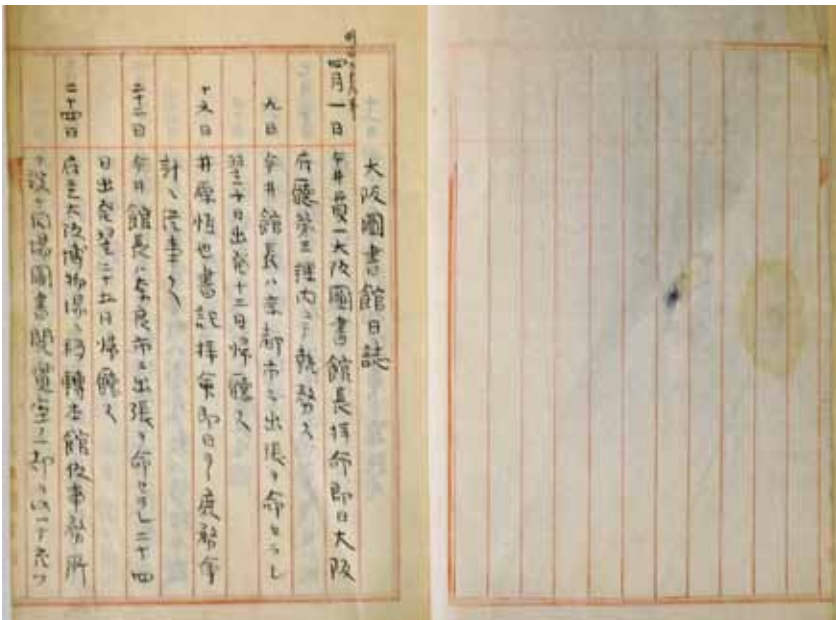 大阪圖書館日誌
四月一日 今井貫一大阪圖書館長拝命即日大阪
府廳第三課内ニテ執務ス
九日 今井館長ハ京都市ニ出張ヲ命セラレ
翌十日出発十二日帰廳ス
十九日 井原恒也書記拝命即日ヨリ庶務會
計ニ従事ス
二十二日 今井館長ハ奈良市ニ出張ヲ命セラレ二十四
日出発翌二十五日帰廳ス
二十四日 府立大阪博物場ニ移轉本館仮事務所
ヲ設ケ同場圖書閲覧室ノ一部ヲ以テ充ツ